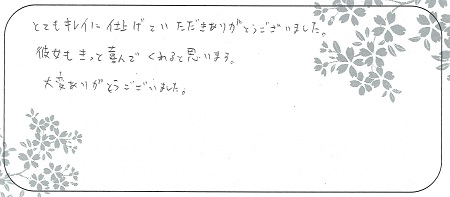 とてもキレイに仕上げていただきありがとうございました。
彼女もきっと喜んでくれると思います。
大変ありがとうございました。